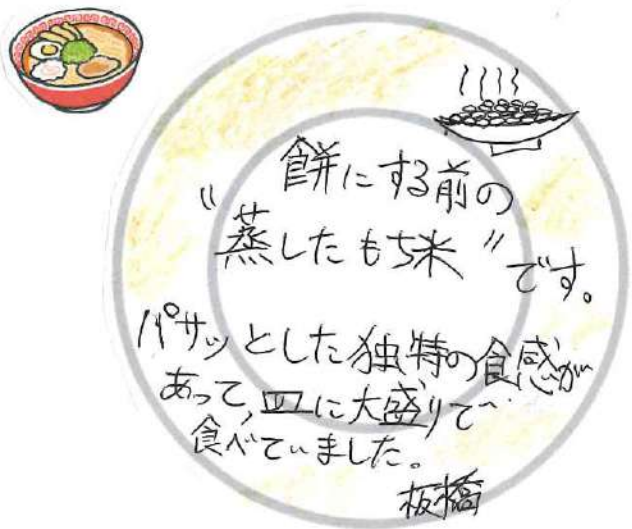 餅にする前の
"蒸したもち米"です。
パサッとした独特の食感が
あって,皿に大盛りで
食べていました。
板橋